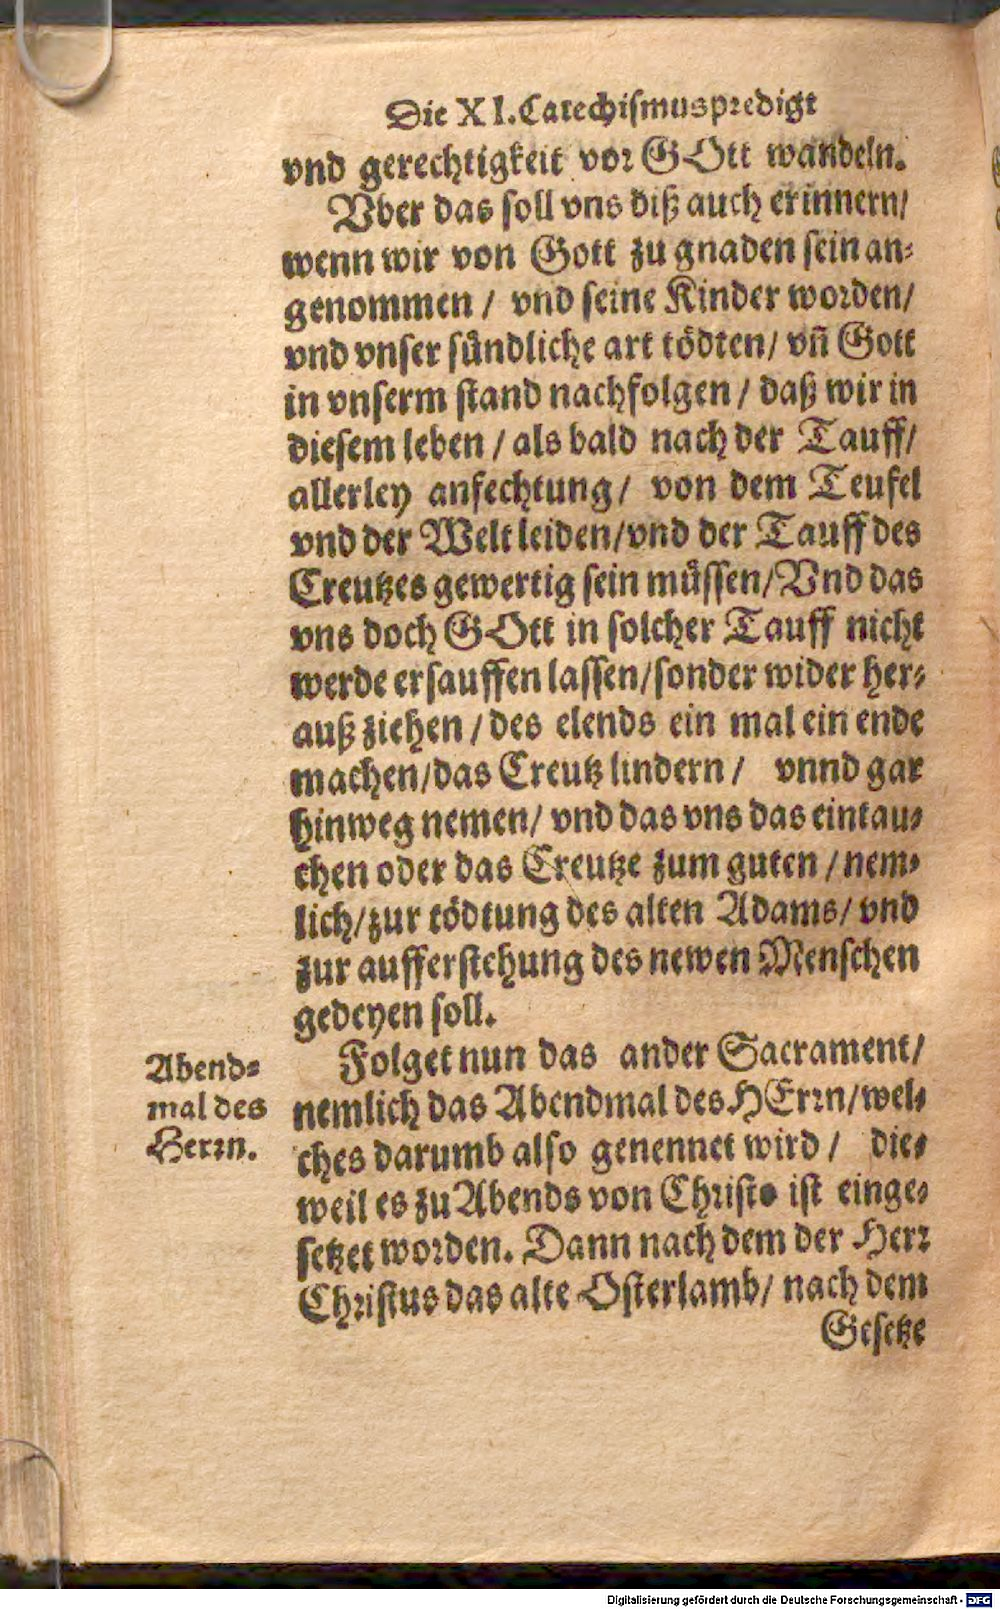 Die XI. Catechismuspredigt
vnd gerechtigkeit vor GOtt wandeln.
Vber das soll vns diß auch erinnern/
wenn wir von Gott zu gnaden sein an-
genommen / vnd seine Kinder worden/
vnd vnser sündliche art tödten/ vñ Gott
in vnserm stand nachfolgen / daß wir in
diesem leben / als bald nach der Tauff/
allerley anfechtung/ von dem Teufel
vnd der Welt leiden/vnd der Tauff des
Creutzes gewertig sein müssen/Vnd das
vns doch GOtt in solcher Tauff nicht
werde ersauffen lassen/sonder wider her-
auß ziehen / des elends ein mal ein ende
machen/das Creutz lindern / vnnd gar
hinweg nemen/ vnd das vns das eintau-
chen oder das Creutze zum guten / nem-
lich/zur tödtung des alten Adams/ vnd
zur aufferstehung des newen Menschen
gedeyen soll.
Folget nun das ander Sacrament/
nemlich das Abendmal des HErrn/wel-
ches darumb also genennet wird / die-
weil es zu Abends von Christo ist einge-
setzet worden. Dann nach dem der Herr
Christus das alte Osterlamb/ nach dem
Gesetze
Abend-
mal des
Herrn.
Digitalisierung gefördert durch die Deutsche Forschungsgemeinschaft - DFG